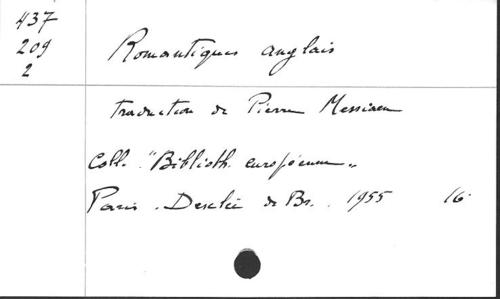 437
209
2
Romantiques anglais
traduction de Pierre Messiaen
Coll. "Biblioth. européenne"
Paris. Desclée de Br. 1955 16